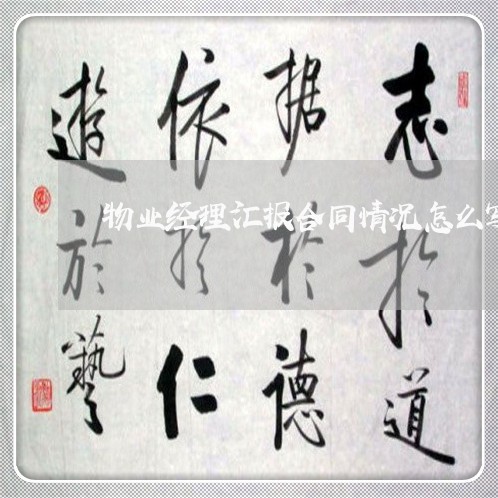 志於道
据於德
依於仁
遊於藝
物业经理汇报合同情况怎么